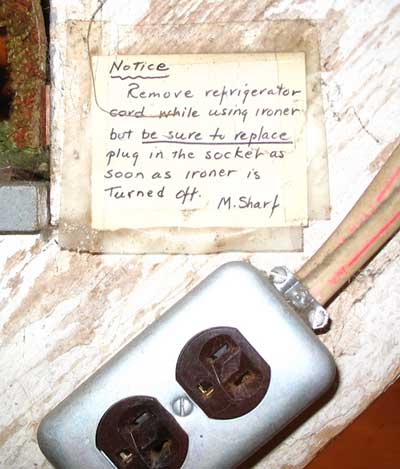 Notice
Remove refrigerator
cord while using ironer
but be sure to replace
plug in the socket as
soon as ironer is
Turned off.
M. Sharf